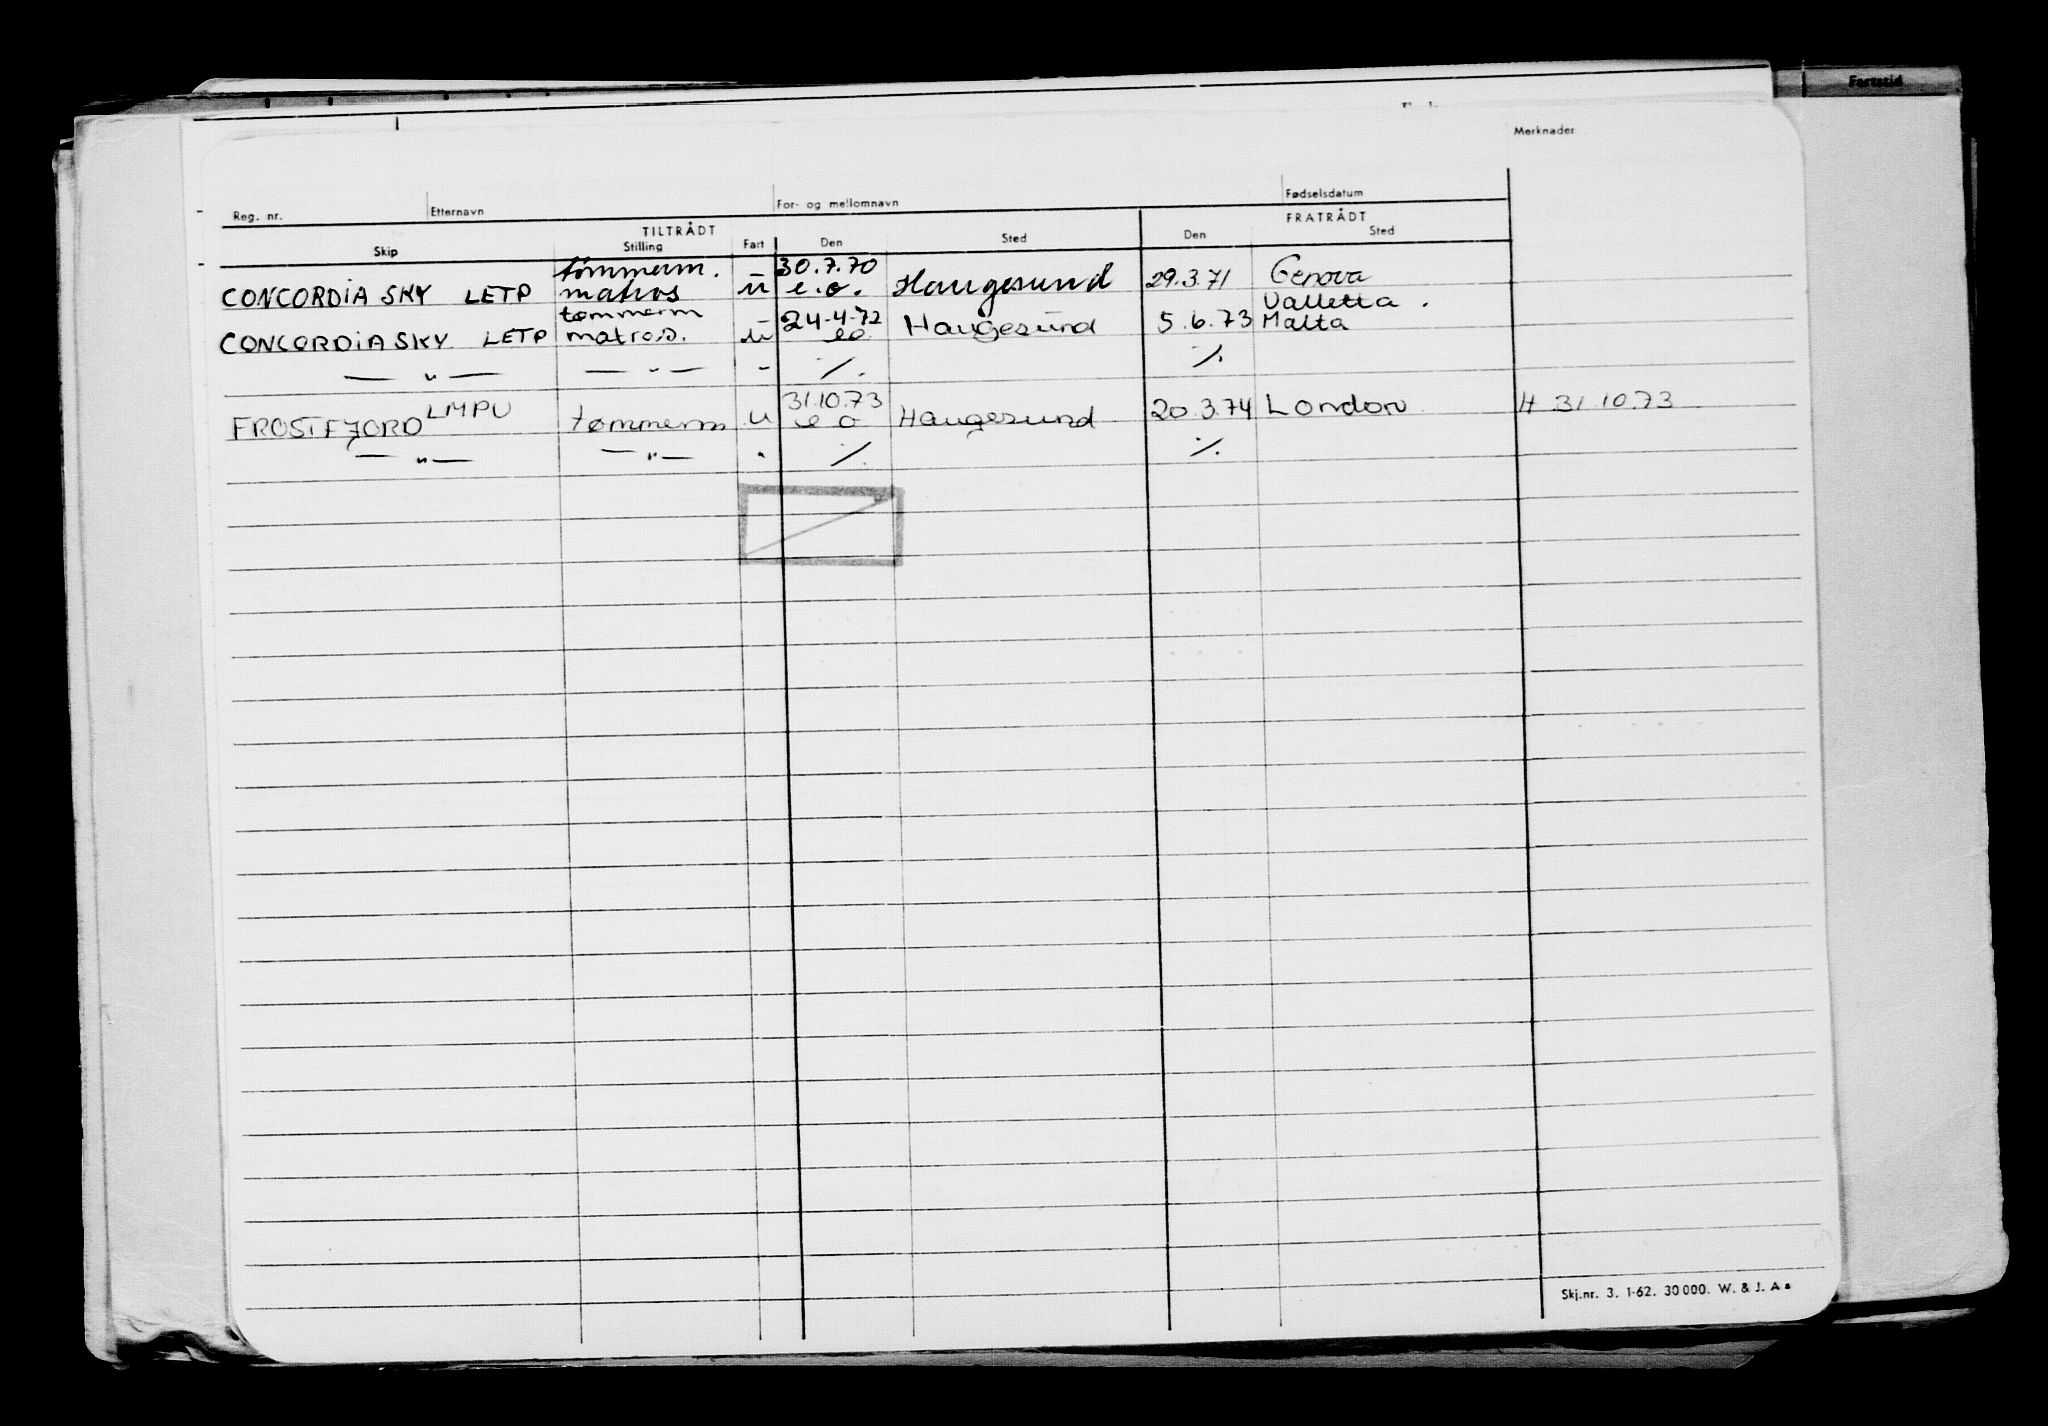 Fartstid
Merknader
Reg. nr. Etternavn For- og mellomnavn Fødselsdatum
TILTRÅDT FRATRÅDT
Skip Stilling Fart Den Sted Den Sted
tømmerm. 30.7.70 Genova
CONCORDIA SKY LETP matros u e.o. Haugesund 29.3.71
tømmerm 24-4-72 Valletta.
CONCORDIA SKY LETP matros. u eo. Haugesund 5.6.73 Malta
— " — — " — - ./. ./.
31.10.73
FROSTFJORD LMPU tømmerm u e o Haugesund 20.3.74 London H 31.10.73
— " — — " — " ./. ./.
Skj.nr. 3. 1-62. 30 000. W. & J. A s